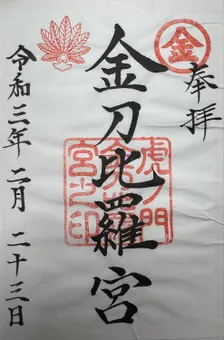 奉拝
金
金刀比羅宮
虎ノ門
金刀比羅
宮之印
令和三年二月二十三日